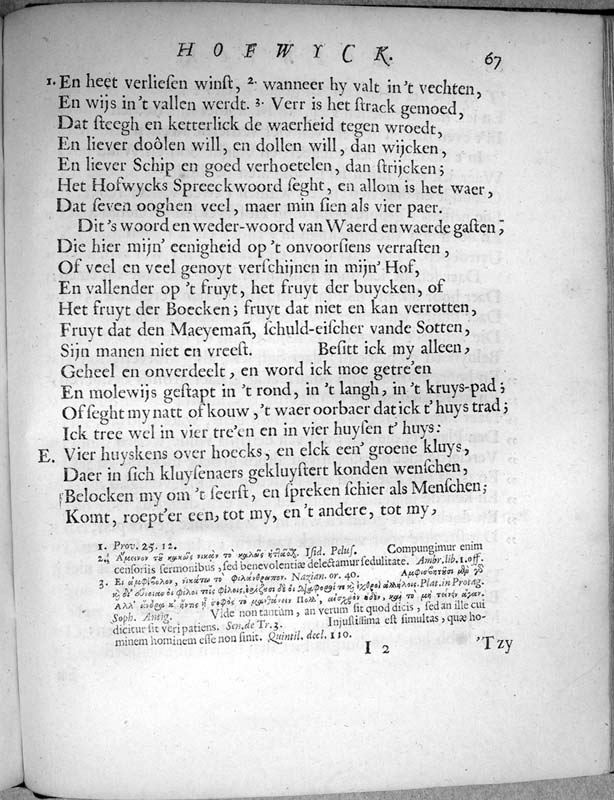 HOFWYCK. 67
1. En heet verliesen winst, 2. wanneer hy valt in't vechten,
En wijs in't vallen werdt. 3. Verr is het strack gemoed,
Dat steegh en ketterlick de waerheid tegen wroedt,
En liever doôlen will, en dollen will, dan wijcken,
En liever Schip en goed verhoetelen, dan strijcken;
Het Hofwycks Spreeckwoord seght, en allom is het waer,
Dat seven ooghen veel, maer min sien als vier paer.
Dit 's woord en weder-woord van Waerd en waerde gasten,
Die hier mijn' eenigheid op 't onvoorsiens verrasten,
Of veel en veel genoyt verschijnen in mijn' Hof,
En vallender op 't fruyt, het fruyt der buycken, of
Het fruyt der Boecken; fruyt dat niet en kan verrotten,
Fruyt dat den Maeymañ, schuld-eischer vande Sotten,
Sijn manen niet en vreest. Besitt ick my alleen,
Geheel en onverdeelt, en word ick moe getre'en
En molewijs gestapt in 't rond, in 't langh, in 't kruys-pad;
Of seght my natt of kouw, 't waer oorbaer dat ick t' huys trad;
Ick tree wel in vier tre'en en in vier huysen t' huys:
E. Vier huyskens over hoecks, en elck een' groene kluys,
Daer in sich kluysenaers gekluystert konden wenschen,
Belocken my om 't seerst, en spreken schier als Menschen;
Komt, roept'er een, tot my, en 't andere, tot my,
1. Prov. 25. 12.
2. Isid. Pelus. Compungimur enim
censoriis sermonibus, sed benevolentiæ delectamur sedulitate. Ambr. lib. 1. off.
3. Nazian. or. 40.
Plat. in Protag.
Soph. Antig. Vide non tantum, an verum sit quod dicis, sed an ille cui
dicitur sit veri patiens. Sen. de Tr. 3. Injustissima est simultas, quæ ho-
minem hominem esse non sinit. Quintil. decl. 110.
I 2 'Tzy